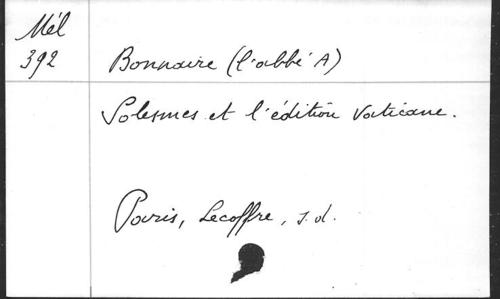 Mél
392
Bonnaire (l'abbé A)
Solesmes et l'édition Vaticane.
Paris, Lecoffre, s.d.